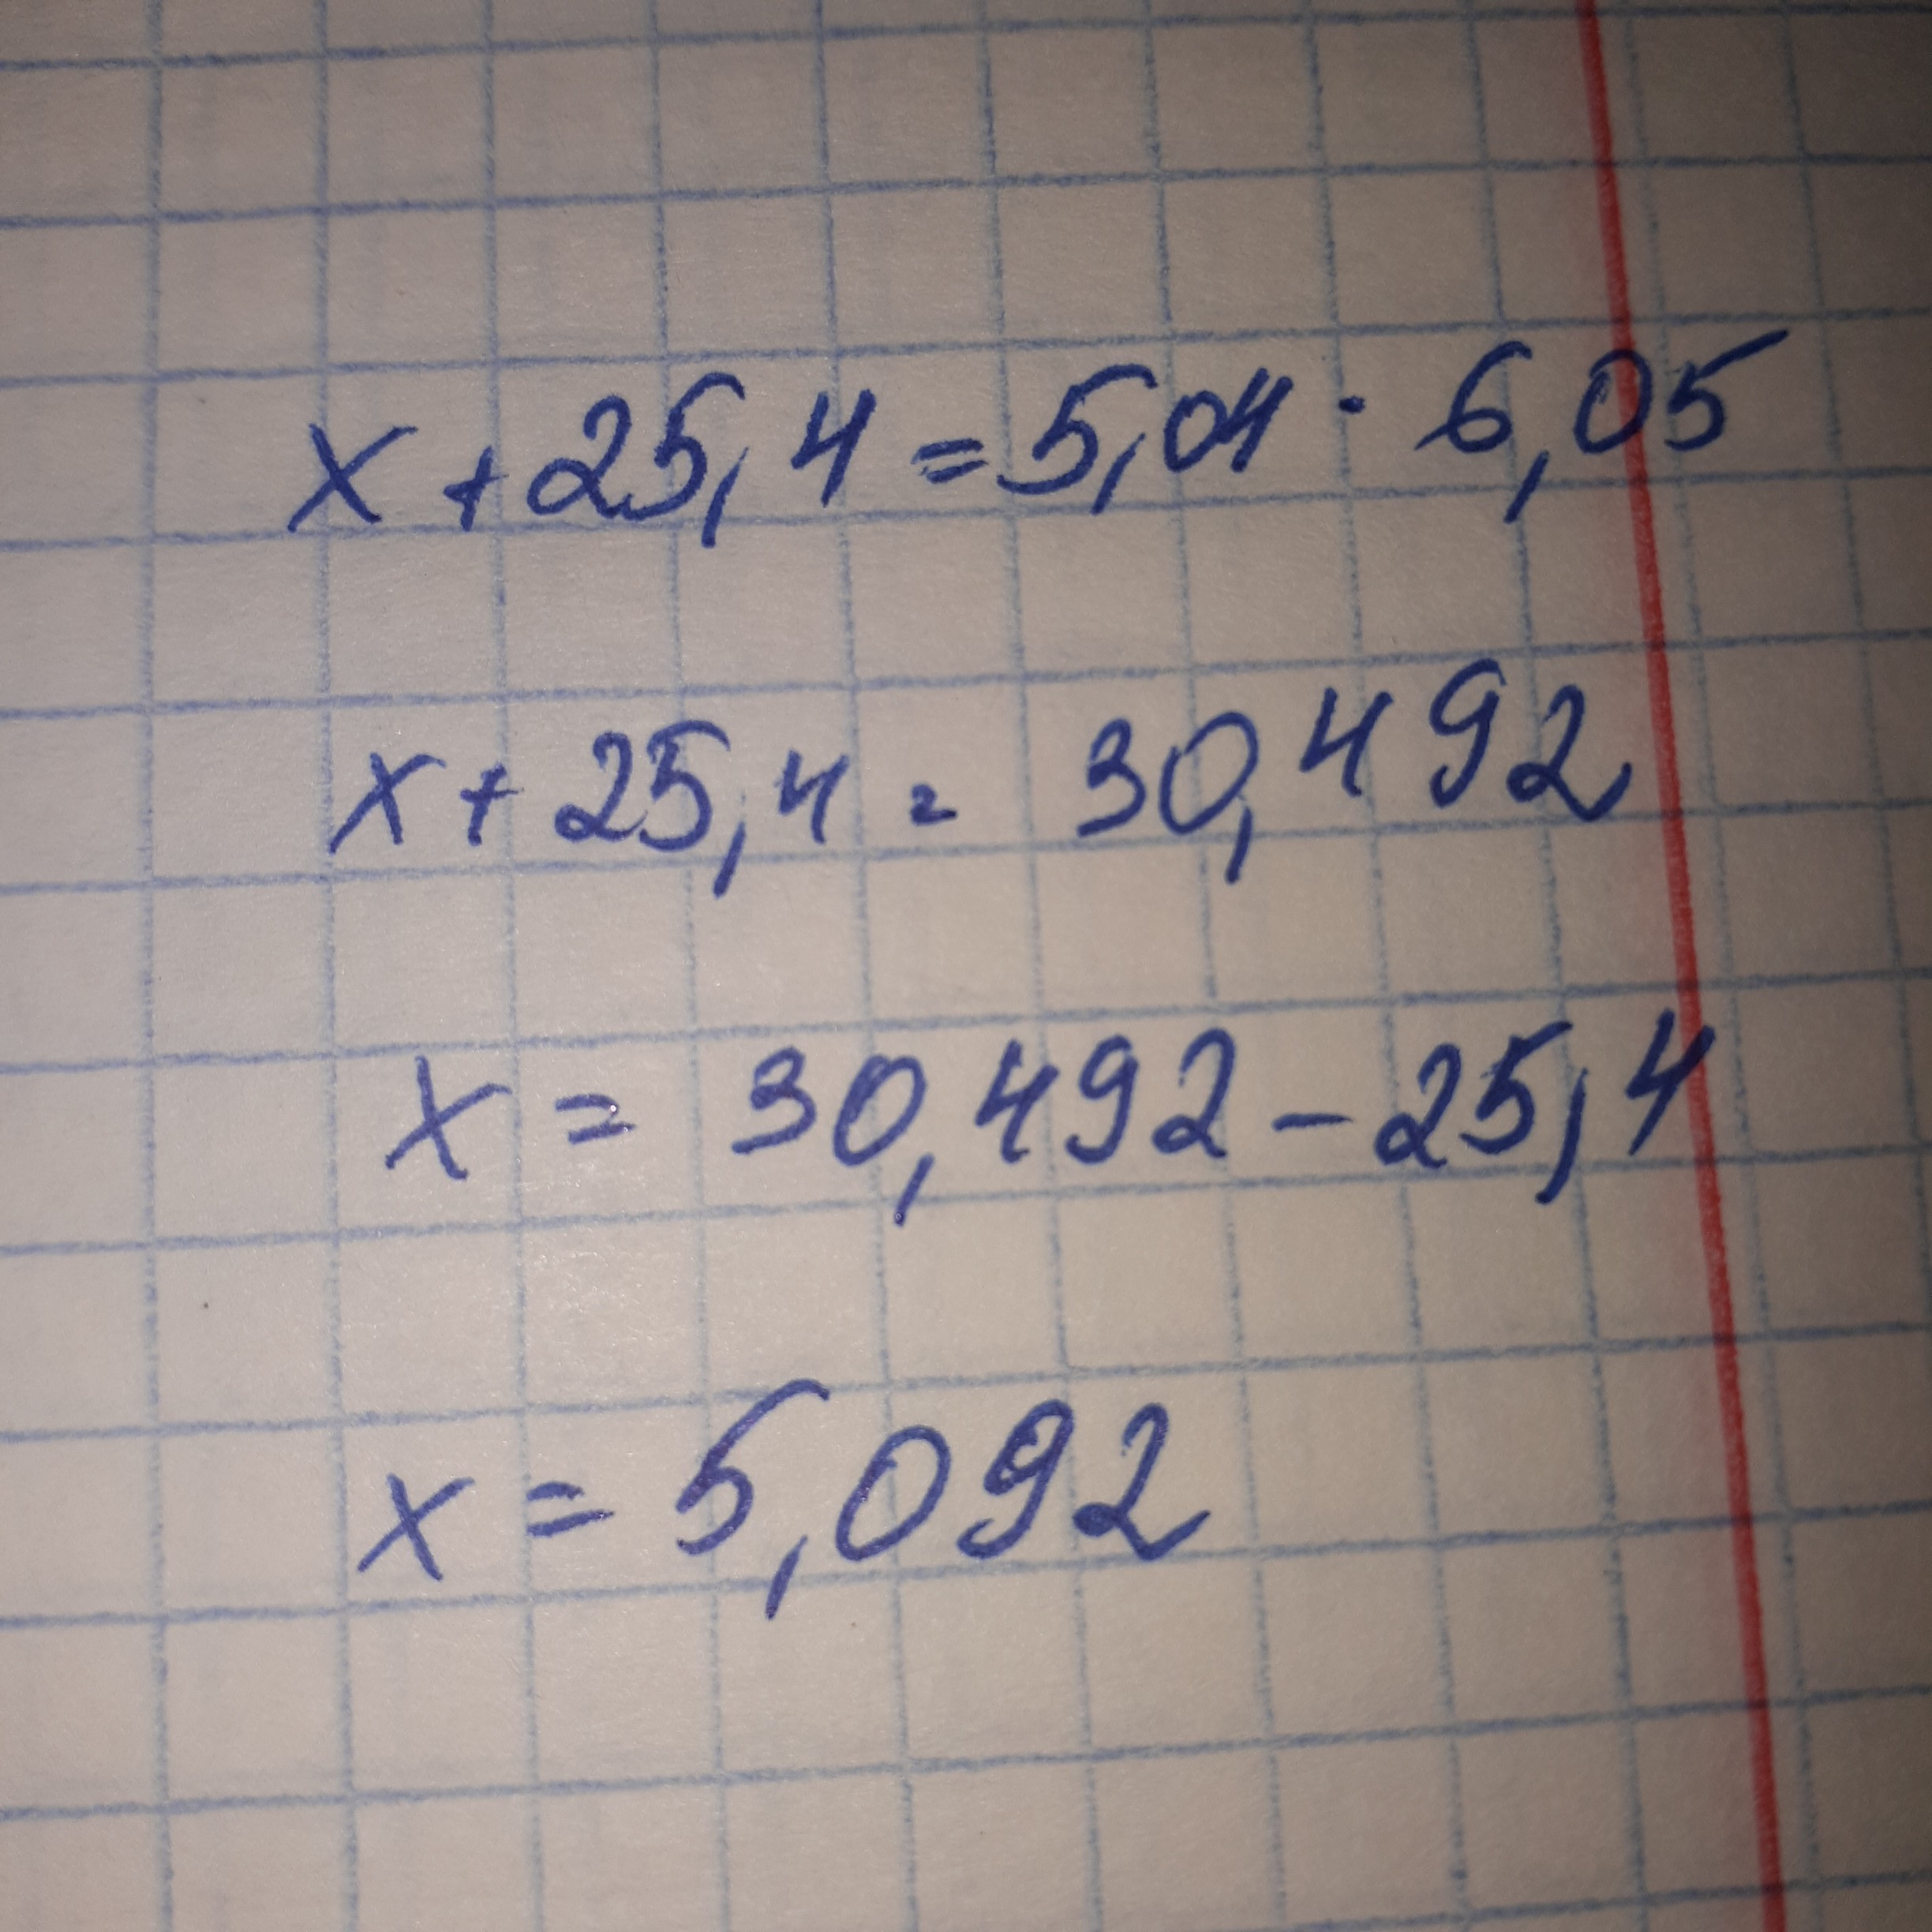 x + 25,4 = 5,04 · 6,05
x + 25,4 = 30,492
x = 30,492 - 25,4
x = 5,092